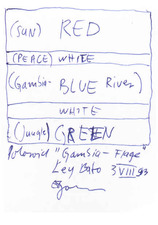 (SUN) RED
(PEACE) WHITE
(Gambia- BLUE River)
WHITE
(Jungle) GREEN
"Gambia - Flage"
3 VIII 93